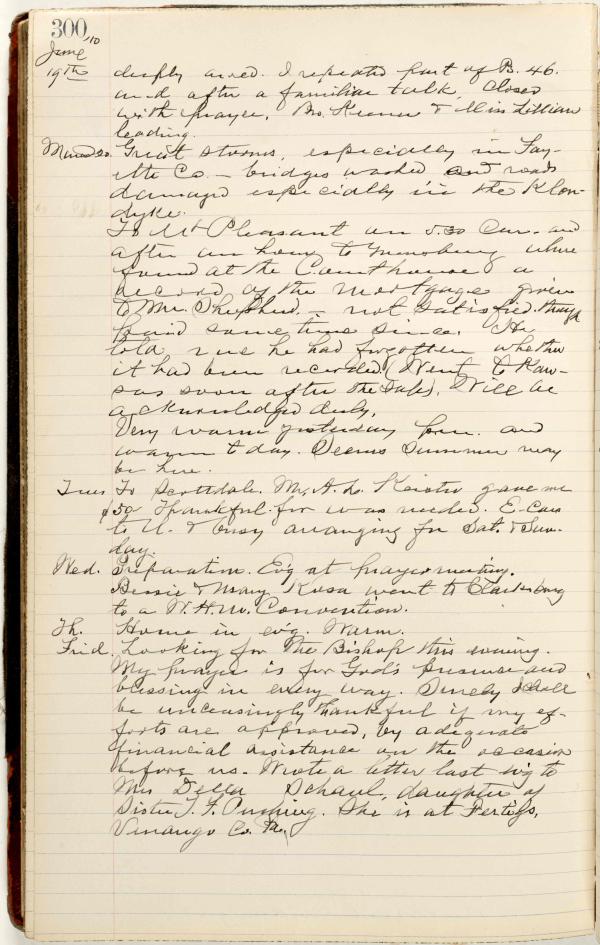 300
'10
June
19th deeply moved. I repeated part of B. 46.
and after a familiar talk, closed
with prayer, Bro. Keener & Miss Lillian
leading.
Mond 20. Great storms, especially in Fay-
ette Co. – bridges washed and roads
damaged especially in the Klon-
dyke.
To Mt Pleasant on 5.30 Car. and
after an hour to Greensburg where
found at the Courthouse a
record of the mortgage given
to Mr. Shepherd. – not satisfied though
paid sometime since. He
told me he had forgotten whether
it had been recorded. (Went to Kan-
sas soon after the Sale). Will be
acknowledged duly.
Very warm yesterday and
warm today. Seems Summer may
be here.
Tues To Scottdale. Mr. A. L. Keister gave me
$50 Thankful for was needed. E. Cars
to U. & busy arranging for Sat. & Sun-
day.
Wed. Preparation. Ev'g at prayermeeting.
Bessie & Mary Rosa went to Clarksburg
to a W.H.M. Convention.
Th. Home in ev'g. Warm.
Frid. Looking for the Bishop this evening.
My prayer is for God's presence and
blessing in every way. Surely shall
be unceasingly thankful if my ef-
forts are approved, by adequate
financial assistance on the occasion
before us. Wrote a letter last ev'g to
Mrs Della Schaul, daughter of
Sister T. F. Pushing. She is at Fertigs,
Venango Co. Pa.